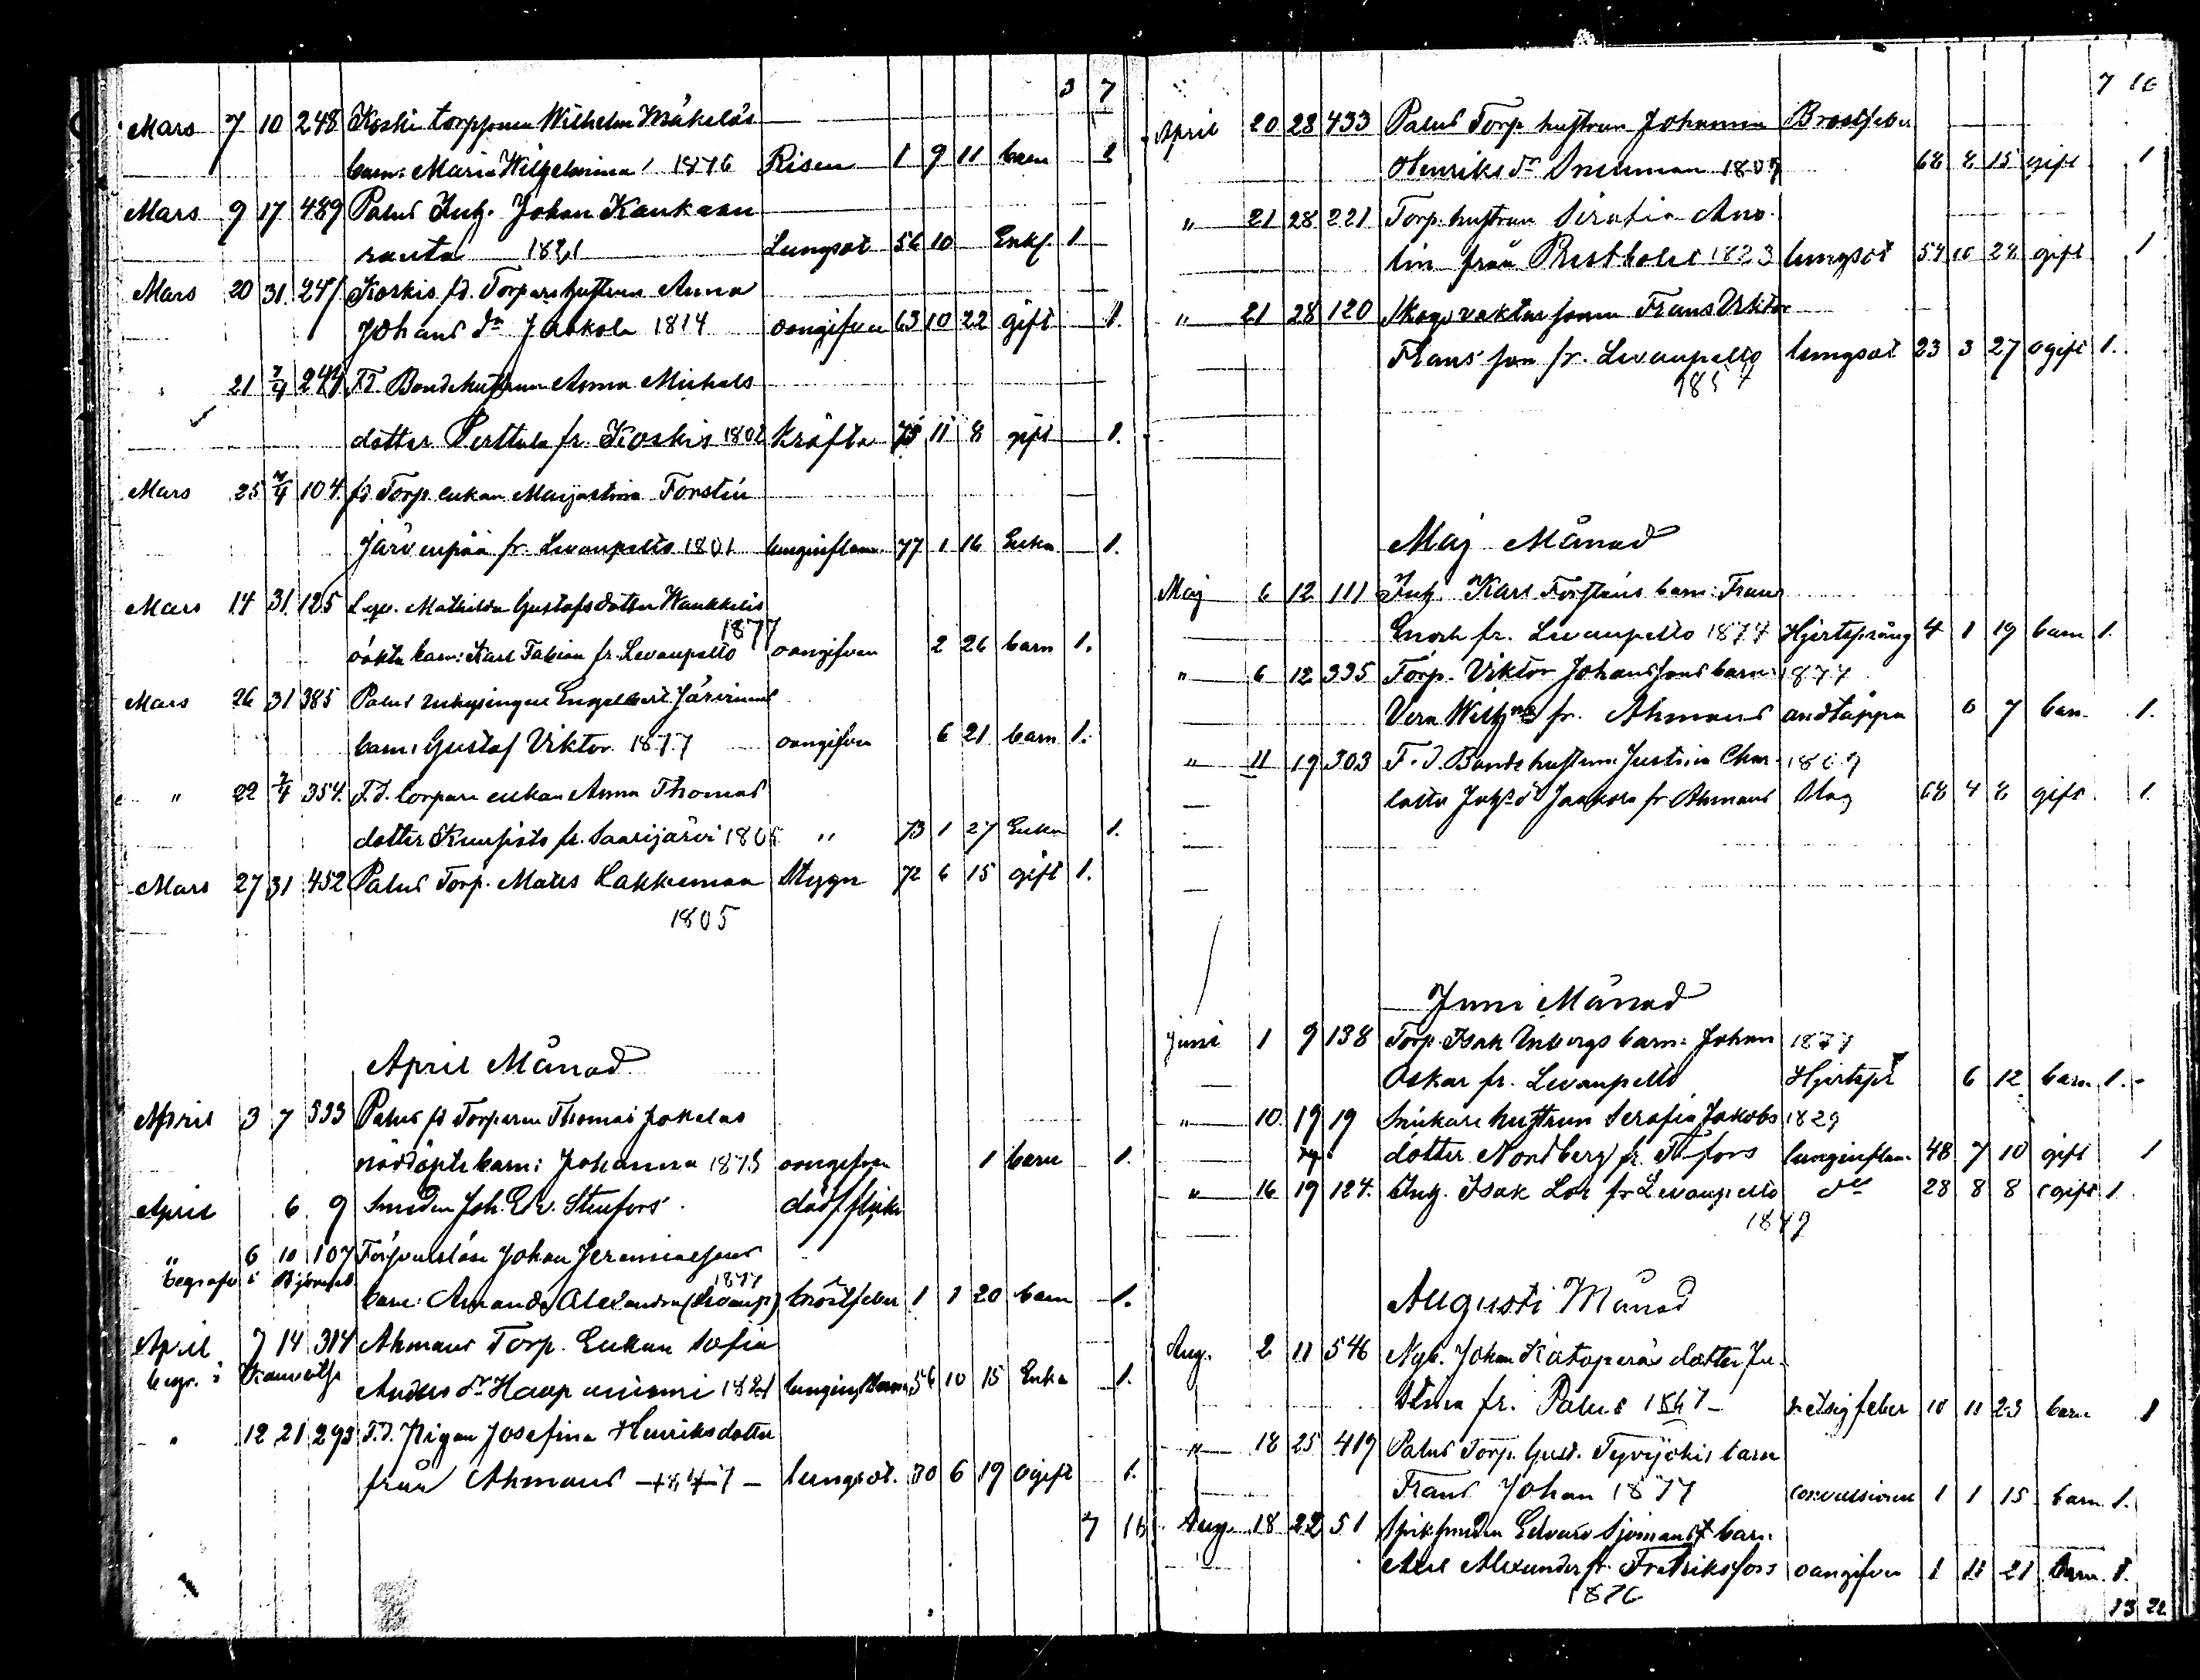 3 7
Mars 7 10 248 Koski torpsonen Wilhelm Mäkeläs
barn: Maria Wilhelmina 1876 Risen 1 9 11 barn 1
Mars 9 17 489 Palus Inh. Johan Kaukaan
rauta 1821 Lungsot 56 10 Enkl. 1
Mars 20 31 247 Koskis fd. Torpare hustrun Anna
Johans dr Jaakola 1814 oangifven 63 10 22 gift 1.
" 21 7/4 244 Fd. Bondehustrun Anna Michels
dotter Perttula fr. Koskis 1802 kräfta 75 11 8 gift 1.
Mars 25 7/4 104. fd Torp. enkan Marjastina Forstin
Järvenpää fr. Levanpelto 1801 lunginflam. 77 1 16 Enka 1.
Mars 14 31 125 Mathilda Gustafsdotter Wankkilis
1877
oäkta barn: Karl Fabian fr. Levanpelto oangifven 2 26 barn 1.
Mars 26 31 385 Palus Engelbert Järvinens
barn: Gustaf Viktor 1877 oangifven 6 21 barn 1.
" 22 7/4 354. F.d. torpare enkan Anna Thomas
dotter Kuusisto fr. Saarijärvi 1805 " 73 1 27 Enka 1.
Mars 27 31 452 Palus Torp. Mats Lakkeman Styng 72 6 15 gift 1.
1805
April Månad
April 3 7 533 Palus fd Torparen Thomas Jokelas
nöddöpte barn: Johanna 1878 oangifven 1 barn 1.
April 6 9 Smeden Joh. Edv. Stenfors dödf flicka
" 6 10 107 Försvarslöse Johan Jeremiaesons
begrafv i Björneb. 1877
barn: Amanda Alexandra (Levanp) bröstfeber 1 1 20 barn 1.
April 7 14 314 Ahmaus Torp. Enkan Sofia
begr. i
Anders dr Haapaniemi 1821 lunginflamm 56 10 15 Enka 1.
" 12 21 293 F.d. Pigan Josefina Henriksdotter
från Ahmaus 1847 lungsot. 30 6 19 ogift 1.
7 16
7 16
April 20 28 433 Palus Torp hustrun Johanna Bröstfeber
Henriks dr Snellman 1809 68 8 15 gift 1
" 21 28 221 Torp. hustrun Serafia
lin från 1823 lungsot 54 10 28 gift 1
" 21 28 120 Skogsvaktar sonen Frans Viktor
Frans son fr. Levanpelto lungsot 23 3 27 ogift 1.
1854
Maj Månad
Maj 6 12 111 Inh. Karl Forsténs barn: Frans
Enoch fr. Levanpelto 1874 Hjertsprång 4 1 19 barn 1.
" 6 12 335 Torp. Viktor Johanssons barn: 1877
Vera Wilhma fr. Ahmaus andtäppa 6 7 barn 1.
" 11 19 303 F.d. Bondehustrun Justina Char- 1809
lotta Joh:s dr Jaakola fr Ahmaus Slag 68 4 8 gift 1.
Juni Månad
Juni 1 9 138 Torp. Isak Enbergs barn: Johan 1877
Oskar fr. Levanpelto Hjertspr 6 12 barn 1.
" 10 19 19 Snickare hustrun Serafia Jakobs 1829
dotter Nordberg fr. Ffors lunginflam 48 7 10 gift 1
" 16 19 124. Inh. Isak Lok fr Levanpelto do 28 8 8 ogift 1.
1849
Augusti Månad
Aug. 2 11 546 Nyb. Johan Katoperäs dotter Ju-
stina fr. Palus 1867 netsigfeber 10 11 23 barn 1
" 18 25 419 Palus Torp. Gust. Tyvijokis barn
Frans Johan 1877 convulsioner 1 1 15 barn 1.
Aug. 18 22 51 Spiksmeden Edvard Sjömans barn
Axel Alexander fr. Fredriksfors oangifven 1 11 21 barn 1.
1876
13 22